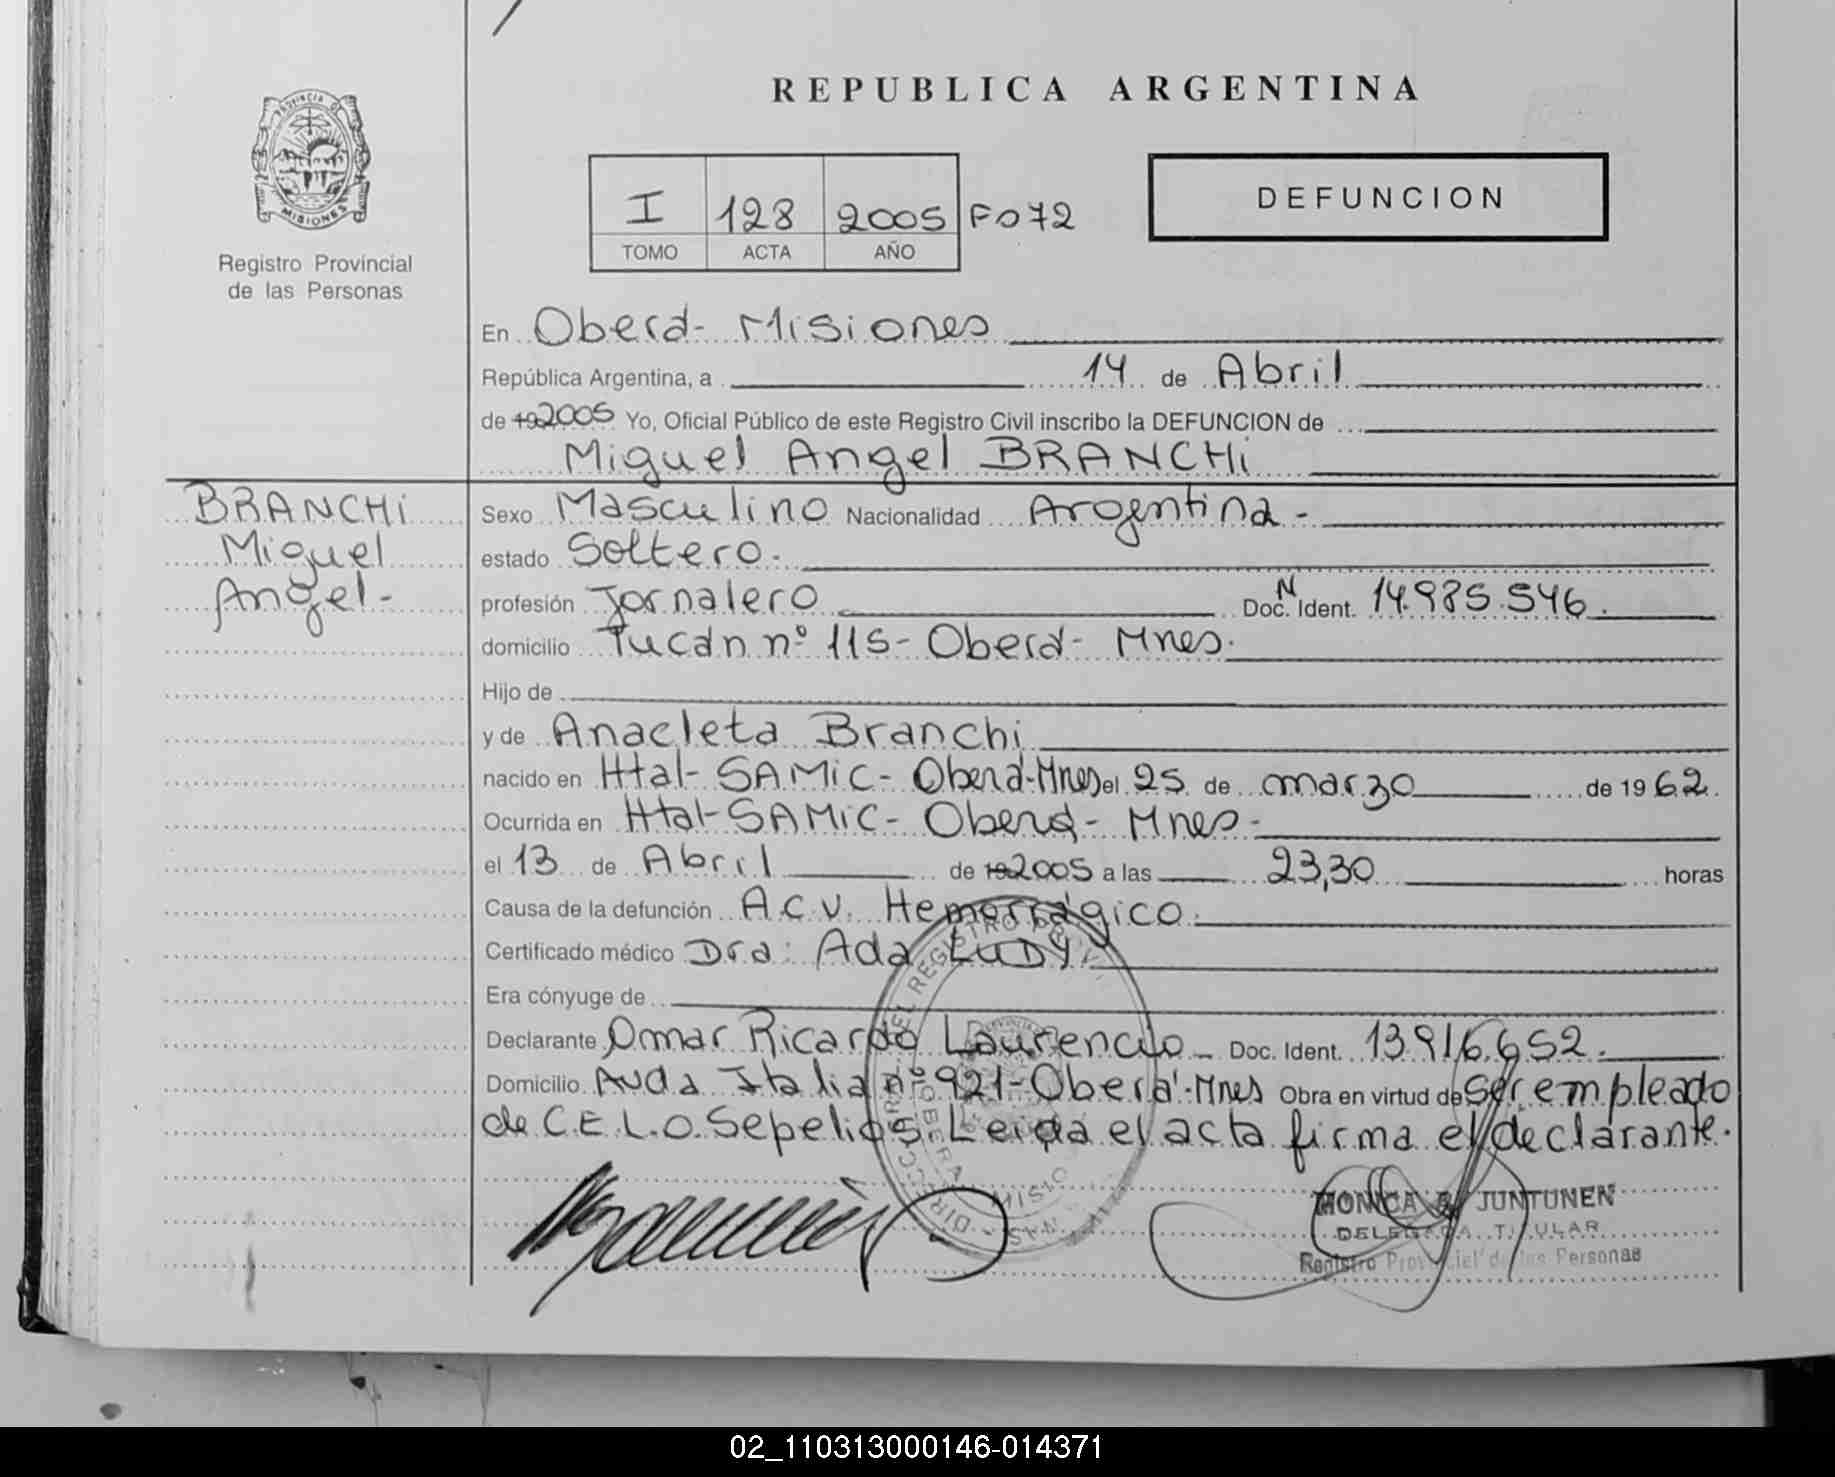 REPUBLICA ARGENTINA
PROVINCIA DE
MISIONES
Registro Provincial
de las Personas
I 128 2005 F072
TOMO ACTA AÑO
DEFUNCION
En Oberá- Misiones
República Argentina, a 14 de Abril
de 192005 Yo, Oficial Público de este Registro Civil inscribo la DEFUNCION de
Miguel Angel BRANCHi
BRANCHi
Miguel
Angel-
Sexo Masculino Nacionalidad Argentina-
estado Soltero.
profesión Jornalero Doc. N Ident. 14.985.546.
domicilio Tucán nº 115- Oberá- Mnes.
Hijo de
y de Anacleta Branchi
nacido en Htal- SAMiC- Oberá-Mnes el 25 de marzo de 1962.
Ocurrida en Htal-SAMiC- Oberá- Mnes-
el 13 de Abril de 192005 a las 23,30 horas
Causa de la defunción A.C.V. Hemorrágico.
Certificado médico Dra: Ada LUDY
Era cónyuge de
Declarante Omar Ricardo Laurencio- Doc. Ident. 13.916.652.
Domicilio Avda Italia nº 921-Oberá-Mnes Obra en virtud de Ser empleado
de C.E.L.O. Sepelios. Leida el acta firma el declarante.
MONICA JUNTUNEN
DELEGADA TITULAR
Registro Provincial de las Personas
02_110313000146-014371